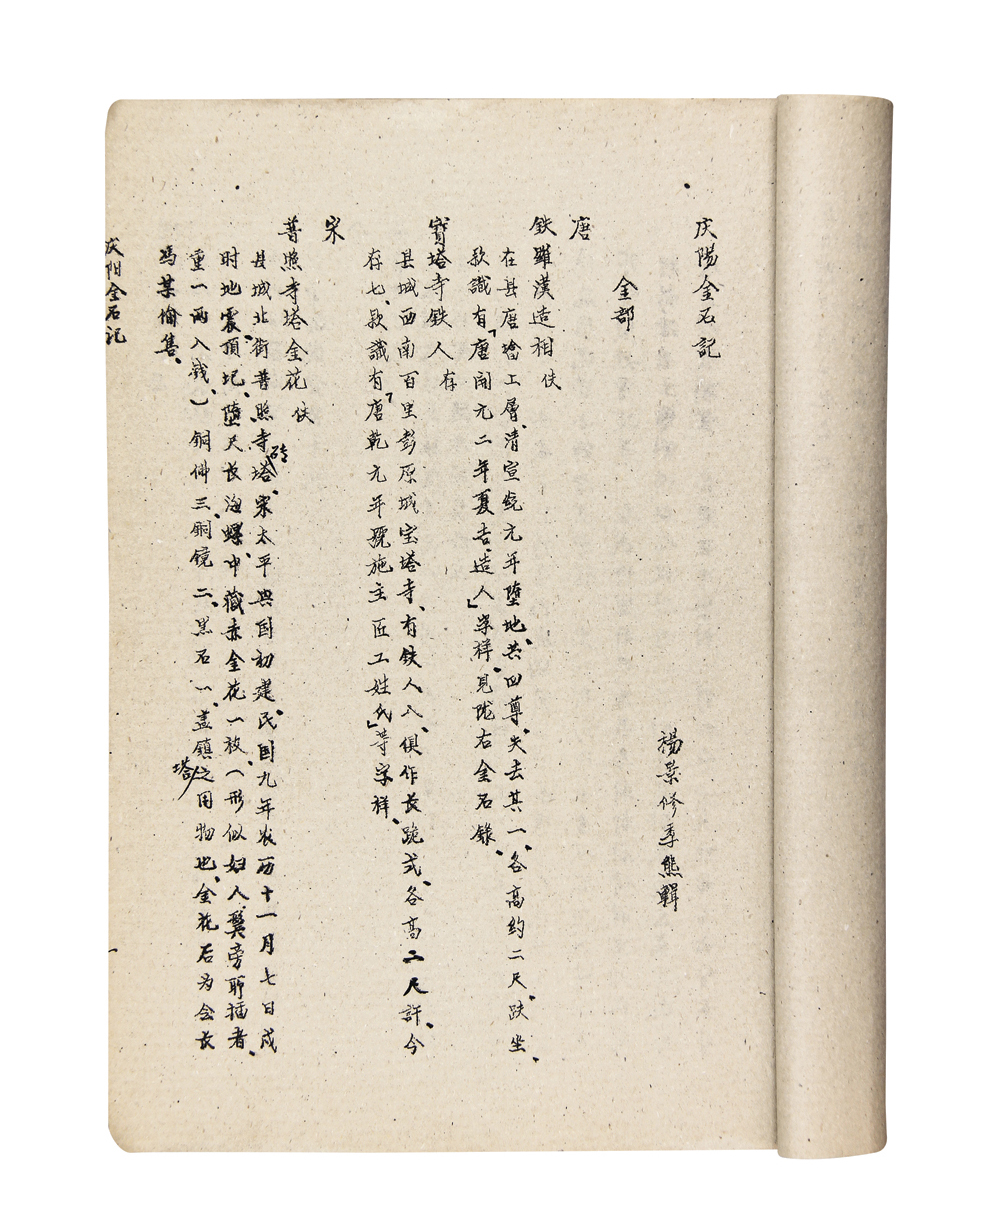 庆陽金石記
楊景修季熊輯
金部
唐
鉄羅漢造相 佚
在县唐塔上層、清宣统元年墮地、共四尊、失去其一、各高约二尺、趺坐、
款識有「唐開元二年夏吉造人」字样、見陇右金石錄、
寶塔寺鉄人 存
县城西南百里彭原城宝塔寺、有鉄人八、俱作长跪式、各高二尺許、今
存七、款識有「唐乾元年號施主匠工姓氏」等字祥、
宋
普照寺塔金花 佚
县城北街普照寺砖塔、宋太平興国初建、民国九年农历十一月七日戌
时地震、頂圮、墮尺长海螺、中藏赤金花一放、(形似妇人鬓旁所插者、
重一两入戥、)銅佛三、銅鏡二、黑石一、盖鎮塔之用物也、金花后为会长
馮某偷售、
庆阳金石记